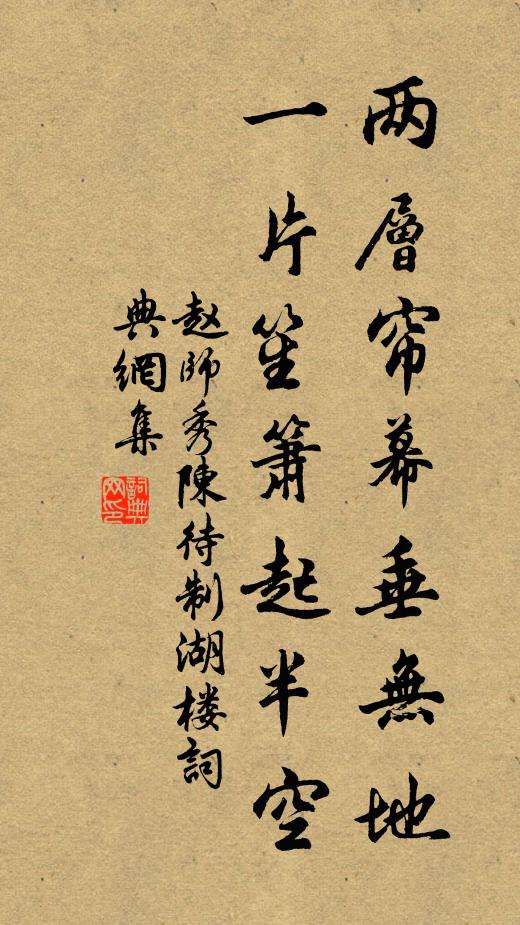 两層帘幕垂無地
一片笙簫起半空
赵師秀陳待制湖楼詞
典網集
詞典网印